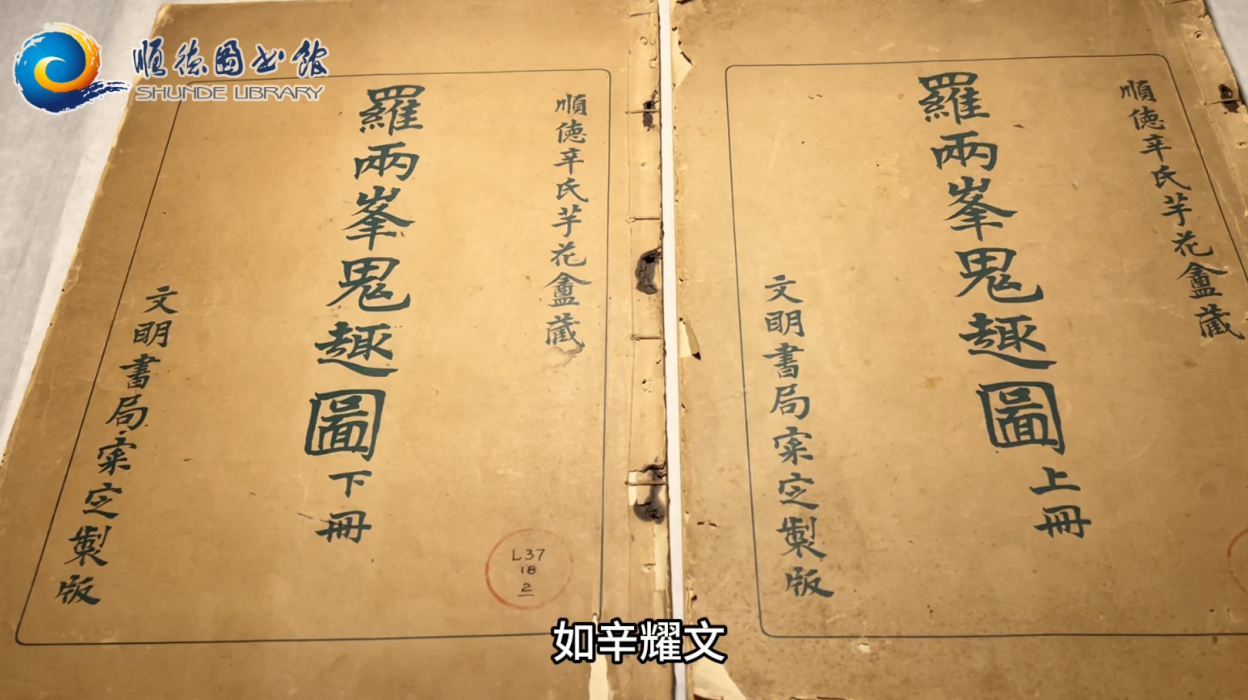 順德图书館
SHUNDE LIBRARY
順德辛氏芋花盦藏
羅兩峯鬼趣圖上冊
文明書局寀定製版
順德辛氏芋花盦藏
羅兩峯鬼趣圖下冊
文明書局寀定製版
L37
18
2
如辛耀文